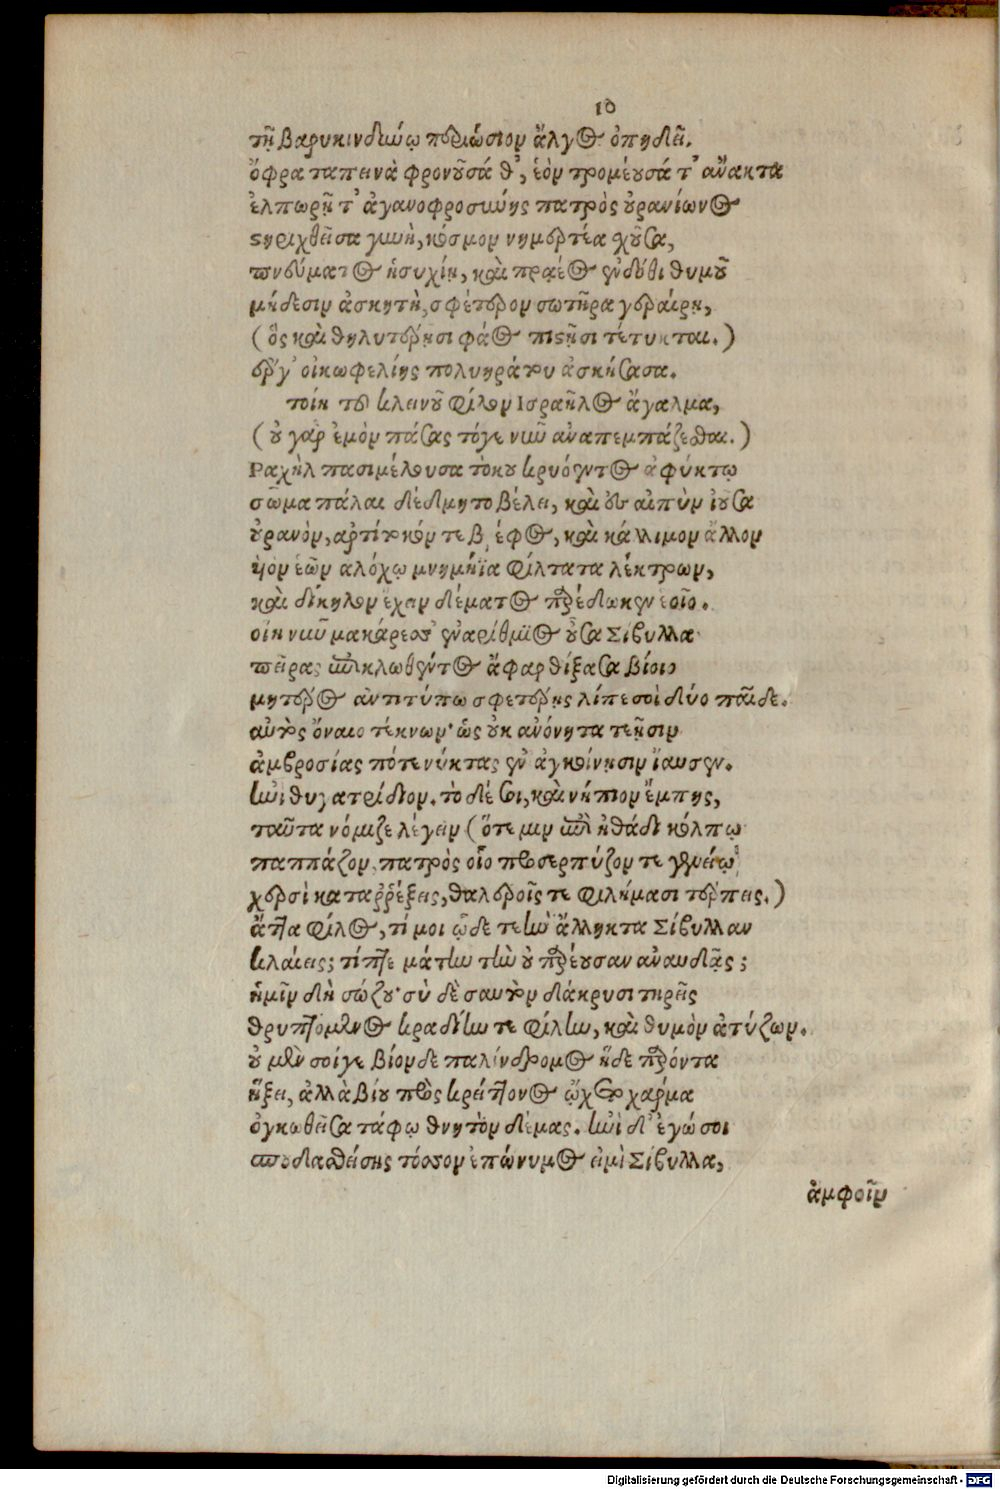 10
τῇ βαρυκινδύνῳ περιώσιον ἄλγος ὀπηδεῖ.
ὄφρα ταπεινὰ φρονοῦσά θ᾽, ἑὸν τρομέουσά τ᾽ ἄνακτα
ἐλπωρῇ τ᾽ ἀγανοφροσύνης πατρὸς οὐρανίωνος
στηριχθεῖσα γυνὴ, κόσμον νημερτέα χοῦσα,
πνεύματος ἡσυχίῃ, καὶ πραέος ἔνδοθι θυμοῦ
μήδεσιν ἀσκητὴ, σφέτερον σωτῆρα γεραίρῃ,
(ὃς καὶ θηλυτέρῃσι φάος πιστῇσι τέτυκται.)
ἔργ᾽ οἰκωφελίης πολυηράτου ἀσκήσασα.
τοίη τοῦ κλεινοῦ φίλον Ισραῆλος ἄγαλμα,
(οὐ γὰρ ἐμὸν πάσας τόγε νῦν ἀναπεμπάζεσθαι.)
Ραχὴλ πασιμέλουσα τόκου κρυόεντος ἀφύκτῳ
σῶμα πάλαι δέδμητο βέλει, καὶ ἐς αἰπὺν ἰοῦσα
οὐρανὸν, ἀρτίτοκόν τε βρέφος, καὶ κάλλιμον ἄλλον
υἱὸν ἑῶν ἀλόχῳ μνημήϊα φίλτατα λέκτρων,
καὶ δίκηλον ἔχειν δέματος προέδωκεν ἑοῖο.
οἵη νῦν μακάρεσσ᾽ ἐναρίθμιος οὖσα Σίβυλλα
πείρας ἐπικλωθέντος ἄφαρ θίξασα βίοιο
μητέρος ἀντιτύπω σφετέρης λίπε σοὶ δύο παῖδε.
αὐτὸς ὄναιο τέκνων· ὡς οὐκ ἀνόνητα τεῇσιν
ἀμβροσίας πότε νύκτας ἐν ἀγκοίνῃσιν ἴαυσεν.
κᾠὶ θυγατρίδιον. τὸ δέ σοι, καὶ νήπιον ἔμπης,
ταῦτα νόμιζε λέγειν (ὅτε μιν ἐπὶ ἠθάδι κόλπῳ
παππάζον, πατρὸς οἷο προσερπύζον τε γενείῳ
χερσὶ καταρρέξεις, θαλεροῖς τε φιλήμασι τέρπεις.)
ἄττα φίλος, τί μοι ὧδε τεὴν ἄλληκτα Σίβυλλαν
κλαίεις; τίπτε μάτην τὴν οὐ προέουσαν ἀναυδᾷς;
ἡμῖν δὴ σώζου· σὺ δὲ σαυτὸν δάκρυσι τηρεῖς
θρυπτόμενος κραδίην τε φίλην, καὶ θυμὸν ἀτύζων.
οὐ μὲν σοίγε βίονδε παλίνδρομος ἥδε ποθόντα
ἥξει, ἀλλὰ βίου πρὸς κρείττονος ᾤχετο χάρμα
ὀγκωθεῖσα τάφῳ θνητὸν δέμας. κᾠὶ δ᾽ ἐγώ σοι
ἀποδιαθείσης τόσσον ἐπώνυμος εἰμὶ Σίβυλλα,
ἀμφοῖν
Digitalisierung gefördert durch die Deutsche Forschungsgemeinschaft - DFG